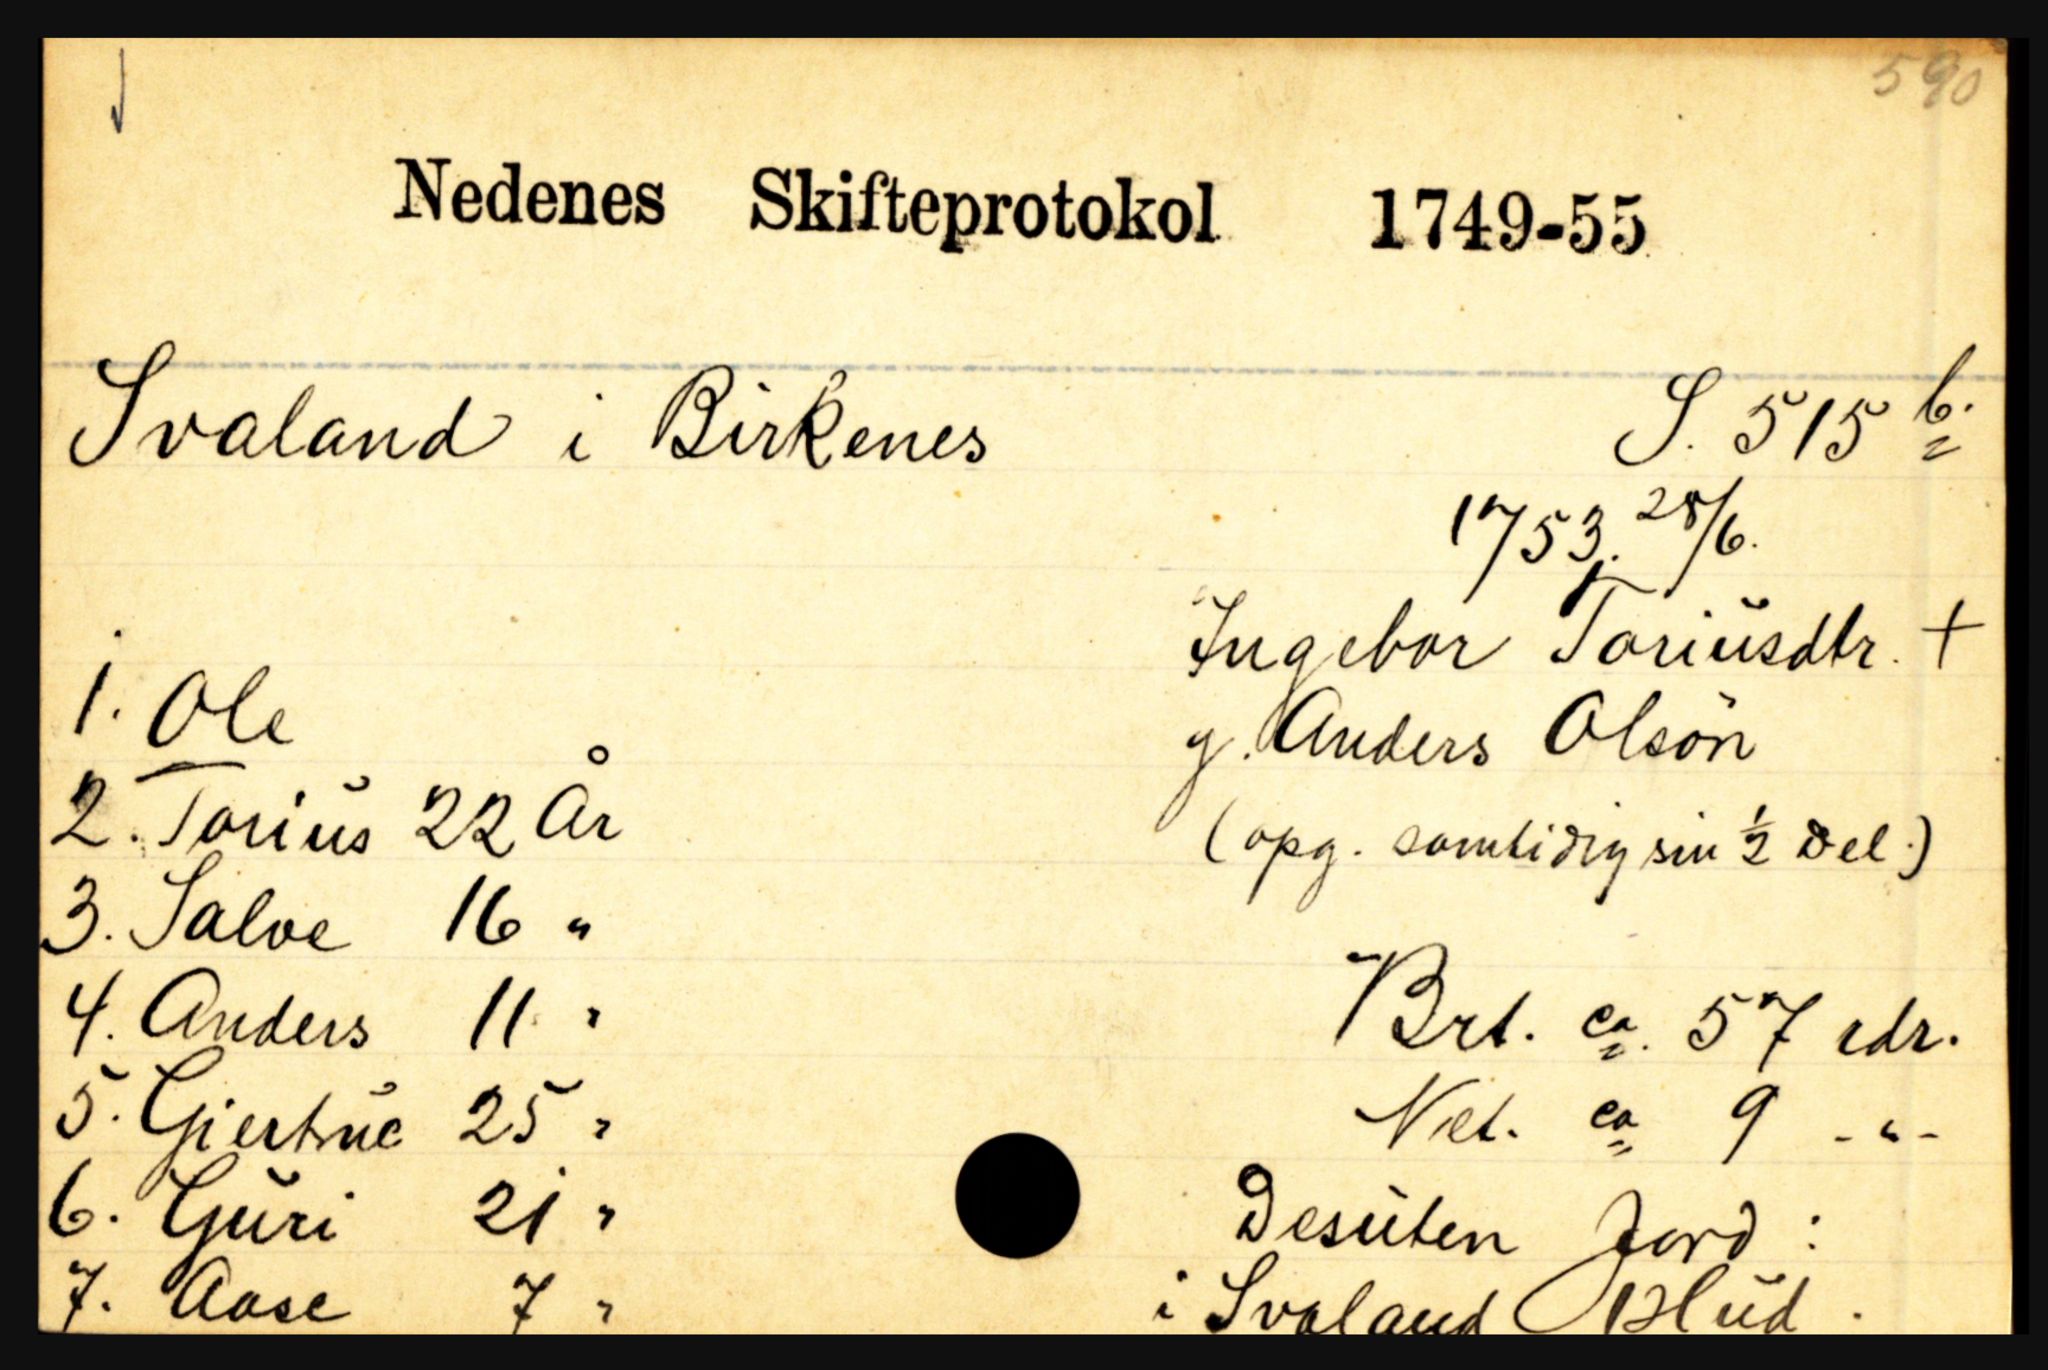 590
Nedenes Skifteprotokol 1749-55
Svaland i Birkenes
S. 515 b.
1753. 28/6.
Ingebor Toriusdtr. +
g. Anders Olsön
(opg. samtidig sin 1/2 Del.)
1. Ole
2. Torius 22 År
3. Salve 16 "
4. Anders 11 "
5. Giertrue 25 "
6. Guri 21 "
7. Aase 7 "
Brt. ca. 57 rdr.
Net. ca 9 -"-
Desuten Jord:
i Svaland Hud.